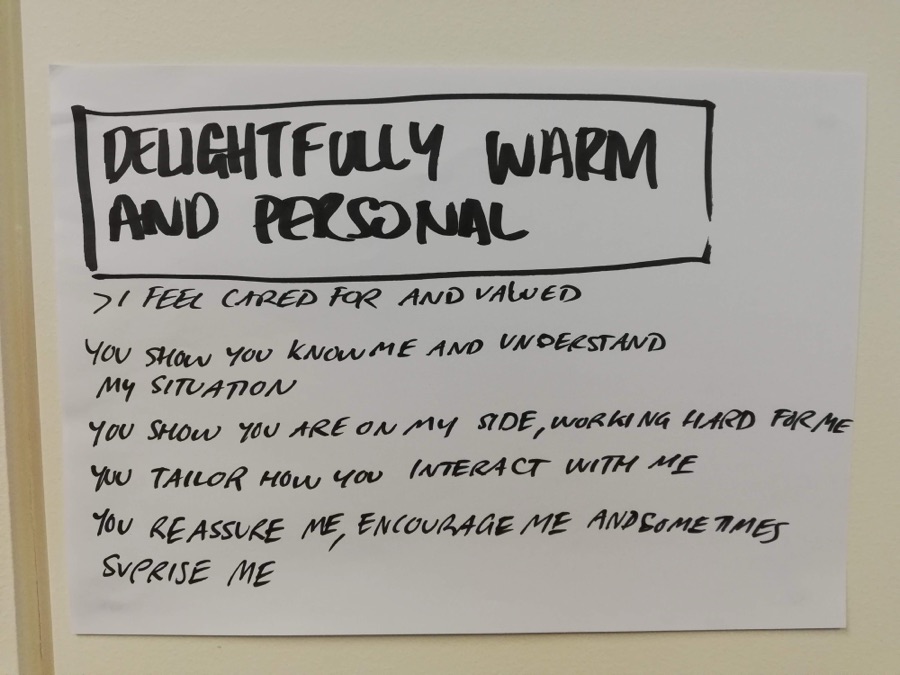 DELIGHTFULLY WARM
AND PERSONAL
> I FEEL CARED FOR AND VALUED
YOU SHOW YOU KNOW ME AND UNDERSTAND
MY SITUATION
YOU SHOW YOU ARE ON MY SIDE, WORKING HARD FOR ME
YOU TAILOR HOW YOU INTERACT WITH ME
YOU REASSURE ME, ENCOURAGE ME AND SOMETIMES
SUPRISE ME